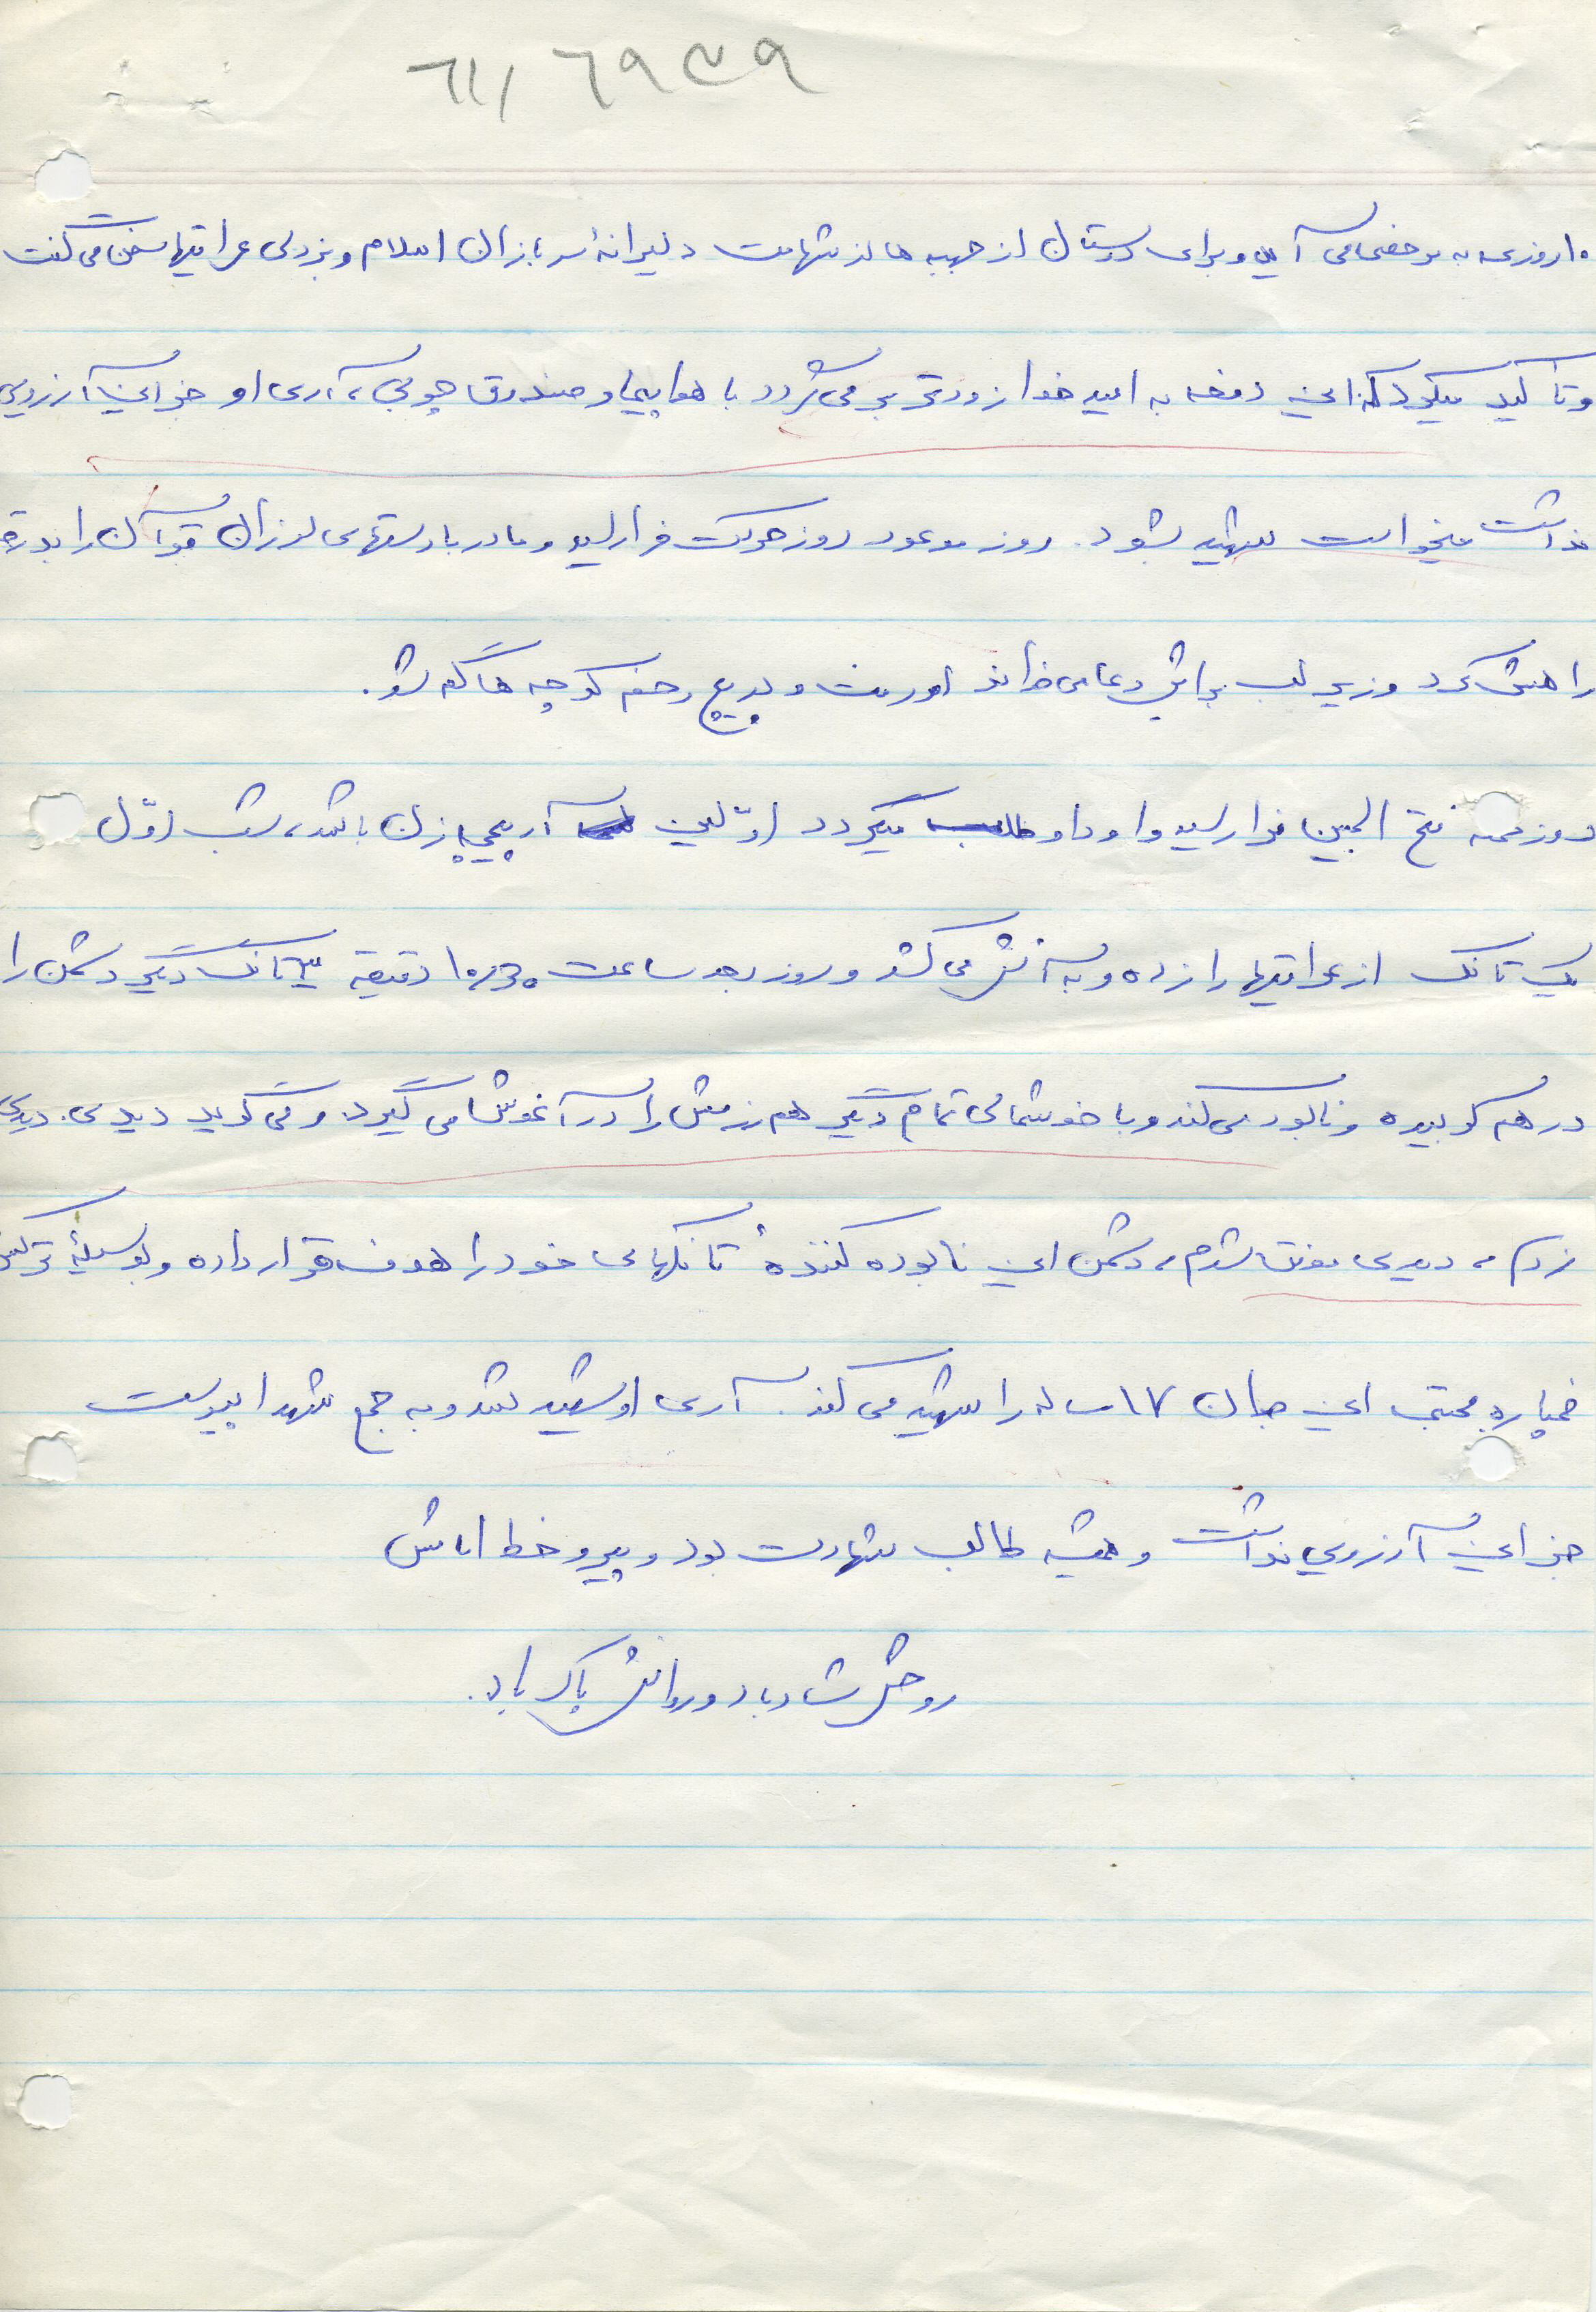 ۶۱/۶۹۳۹
۱۰ روزی به مرخصی می آید و برای دوستان از جبهه ها از شهامت دلیرانهٔ سربازان اسلام و بزدلی عراقیها سخن می گفت
و تأکید میکرد که این دفعه به امید خدا زودتر بر می گردد با هواپیما و صندوق چوبی، آری او جز این آرزویی
نداشت میخواست شهید بشود. روز موعود روز حرکت فرا رسید و مادر با دستهای لرزان قرآن را بدرقه
راهش کرد و زیر لب برایش دعا می خواند او رفت و در پیچ و خم کوچه ها گم شد.
روز حمله فتح المبین فرا رسید و او داوطلب میگردد اوّلین آرپیجی زن باشد، شب اوّل
یک تانک از عراقیها را زده و به آتش می کشد و روز بعد ساعت ۱۰/۳۰ دقیقه ۳ تانک دیگر دشمن را
در هم کوبیده و نابود می کند و با خوشحالی تمام دیگر هم رزمش را در آغوش می گیرد. و می گوید دیدی. دیدی
زدم، دیدی موفق شدم، دشمن این نابوده کنندهٔ تانکهای خود را هدف قرار داده و بوسیلهٔ ترکش
خمپاره مجتبی این جوان ۱۷ ساله را شهید می کند. آری او شهید شد و به جمع شهدا پیوست
جز این آرزویی نداشت و همیشه طالب شهادت بود و پیرو خط امامش
روحش شاد باد و روانش پاک باد.